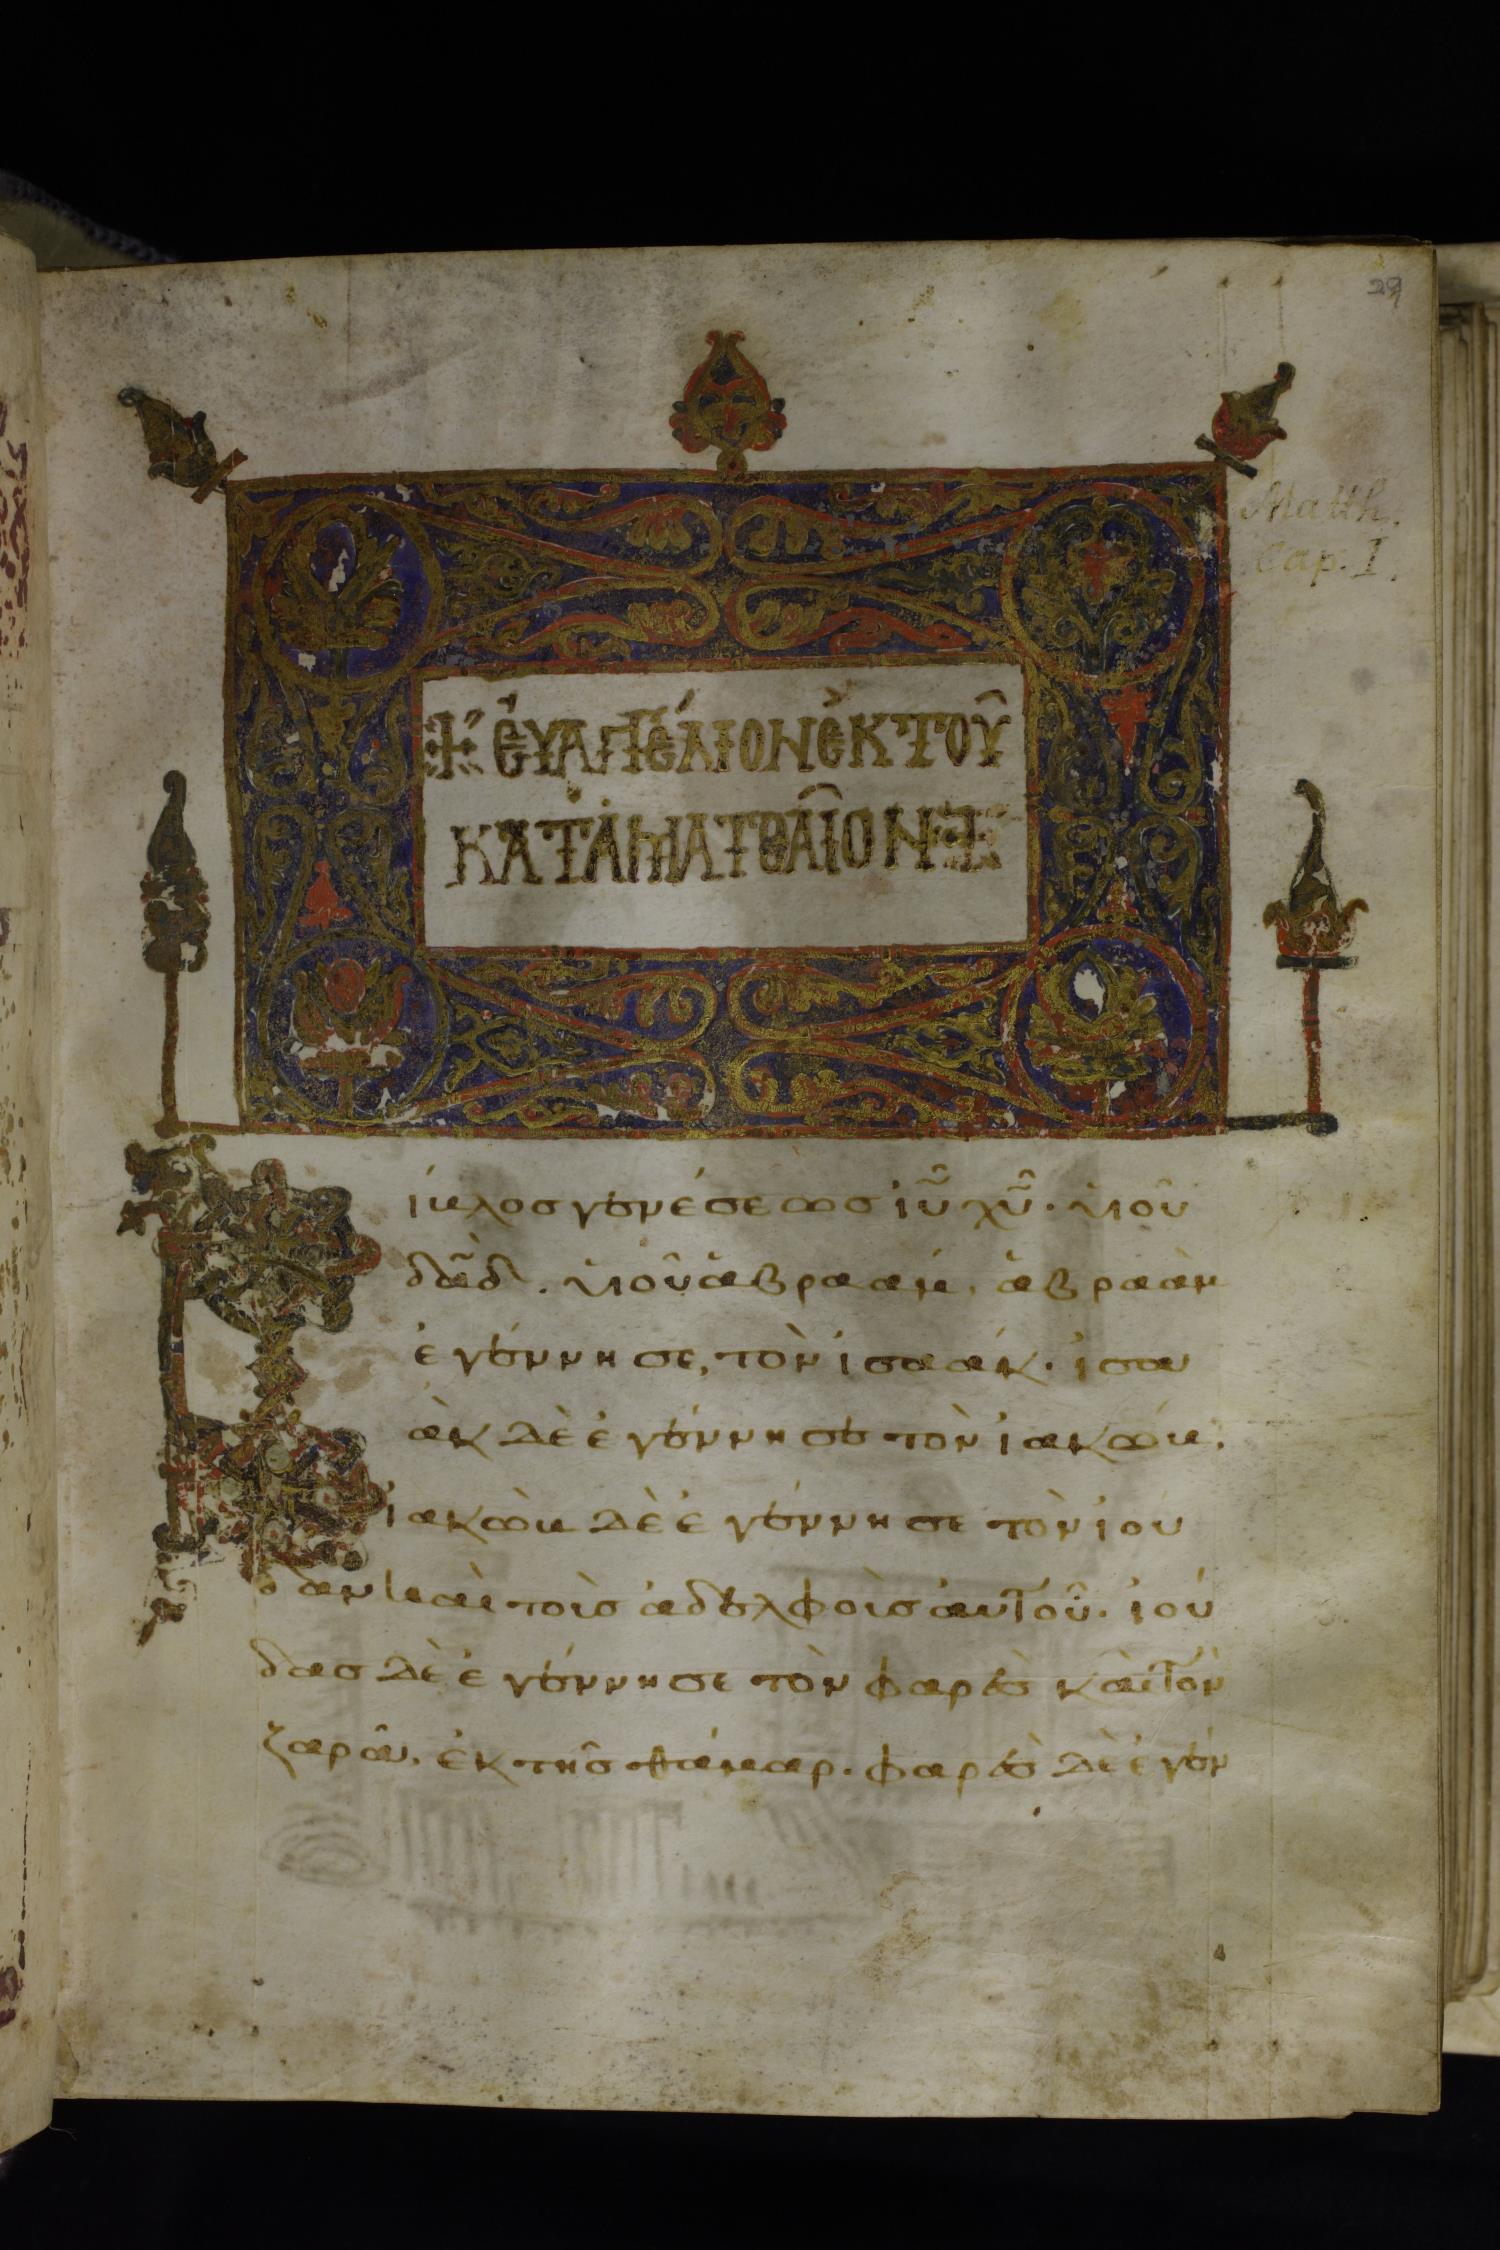 29
Matth.
Cap. I.
εὐαγγέλιον ἐκ τοῦ
κατὰ ματθαῖον
Βίβλος γενέσεως ἰῦ χῦ. υἱοῦ
δαδ. υἱοῦ ἀβραάμ. ἀβραὰμ
ἐγέννησε, τὸν ἰσαάκ. ἰσα
ὰκ δὲ ἐγέννησε τὸν ἰακώβ.
ἰακὼβ δὲ ἐγέννησε τὸν ἰού
δαν καὶ τοὶσ ἀδελφοὶσ ἀυτοῦ. ἰού
δασ δὲ ἐγέννησε τὸν φαρὲσ καὶ τὸν
ζαρᾶ. ἐκ τῆσ θάμαρ. φαρὲσ δὲ ἐγέν